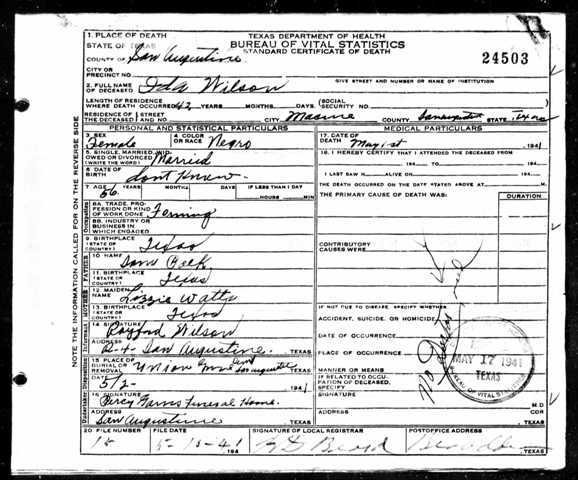 1. PLACE OF DEATH
STATE OF TEXAS
COUNTY OF San Augustine
CITY OR
PRECINCT NO.
TEXAS DEPARTMENT OF HEALTH
BUREAU OF VITAL STATISTICS
STANDARD CERTIFICATE OF DEATH
24503
GIVE STREET AND NUMBER OR NAME OF INSTITUTION
2. FULL NAME
OF DECEASED Ida Wilson
LENGTH OF RESIDENCE
WHERE DEATH OCCURRED 42 YEARS MONTHS DAYS (SOCIAL
SECURITY NO.
RESIDENCE OF
THE DECEASED STREET
AND NO. CITY COUNTY STATE Texas
PERSONAL AND STATISTICAL PARTICULARS
3. SEX
Female
4. COLOR
OR RACE Negro
5. SINGLE, MARRIED, WID-
OWED OR DIVORCED
(WRITE THE WORD) Married
6. DATE OF
BIRTH Dont Know
7. AGE YEARS MONTHS DAYS IF LESS THAN 1 DAY
56 HOURS MIN
8A. TRADE, PRO-
FESSION OR KIND
OF WORK DONE Farming
8B. INDUSTRY OR
BUSINESS IN
WHICH ENGAGED
9. BIRTHPLACE
(STATE OR
COUNTRY) Texas
10 NAME
Sam Polk
11. BIRTHPLACE
(STATE OR
COUNTRY) Texas
12. MAIDEN
NAME Lizzie Watts
13. BIRTHPLACE
(STATE OR
COUNTRY) Texas
14 SIGNATURE
Rayford Wilson
ADDRESS
R-4- San Augustine TEXAS
15 PLACE OF
BURIAL OR
REMOVAL Union Grove Cem San Augustine TEXAS
DATE
5/2- 1941
16 SIGNATURE
Percy Garns Funeral Home
ADDRESS
San Augustine TEXAS
MEDICAL PARTICULARS
17. DATE OF
DEATH May 1st 1941
18. I HEREBY CERTIFY THAT I ATTENDED THE DECEASED FROM
194 TO 194
I LAST SAW H ALIVE ON 194
THE DEATH OCCURRED ON THE DATE STATED ABOVE AT M.
THE PRIMARY CAUSE OF DEATH WAS: DURATION
CONTRIBUTORY
CAUSES WERE:
IF NOT DUE TO DISEASE, SPECIFY WHETHER:
ACCIDENT, SUICIDE, OR HOMICIDE
DATE OF OCCURRENCE
PLACE OF OCCURRENCE
MANNER OR MEANS
IF RELATED TO OCCU-
PATION OF DECEASED,
SPECIFY
SIGNATURE M.D.
ADDRESS COR
TEXAS
No Doctor
MAY 17 1941
TEXAS
BUREAU OF VITAL
20 FILE NUMBER FILE DATE SIGNATURE OF LOCAL REGISTRAR POSTOFFICE ADDRESS
15 5-15-41 194 TEXAS
NOTE THE INFORMATION CALLED FOR ON THE REVERSE SIDE